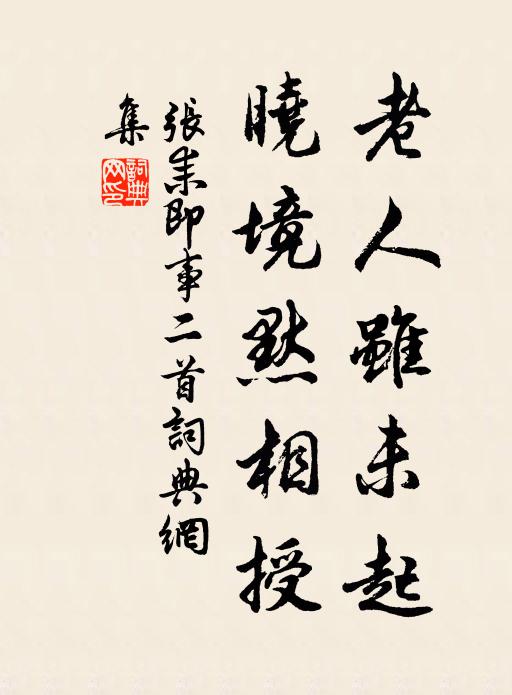 老人雖未起
曉境默相授
張耒即事二首詞典網
集
詞典網印